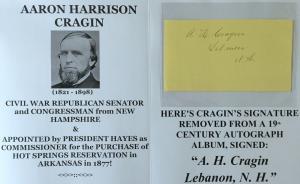 AARON HARRISON
CRAGIN
(1821 - 1898)
CIVIL WAR REPUBLICAN SENATOR
and CONGRESSMAN from NEW
HAMPSHIRE
&
APPOINTED by PRESIDENT HAYES as
COMMISSIONER for the PURCHASE OF
HOT SPRINGS RESERVATION in
ARKANSAS in 1877!
<<>>::<<>>
A. H. Cragin
Lebanon
N.H.
HERE'S CRAGIN'S SIGNATURE
REMOVED FROM A 19th
CENTURY AUTOGRAPH
ALBUM, SIGNED:
"A. H. Cragin
Lebanon, N. H."